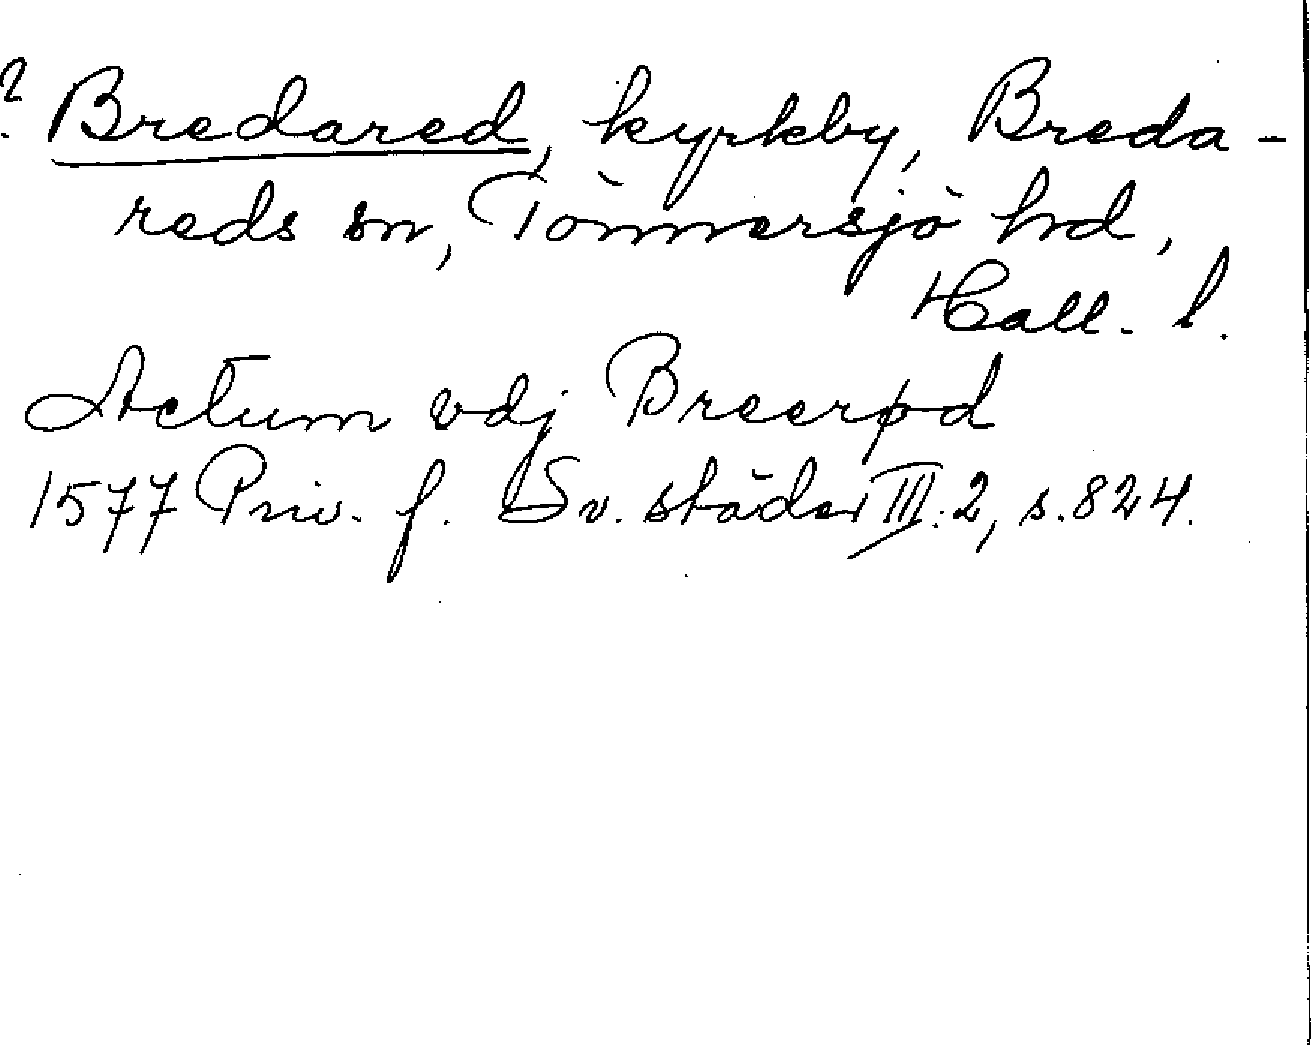 ? Bredared, kyrkby, Breda-
reds sn, Tönnersjö hd,
Hall. l.
Actum vdj Breerød
1577 Priv. f. Sv. städer III:2, s. 824.